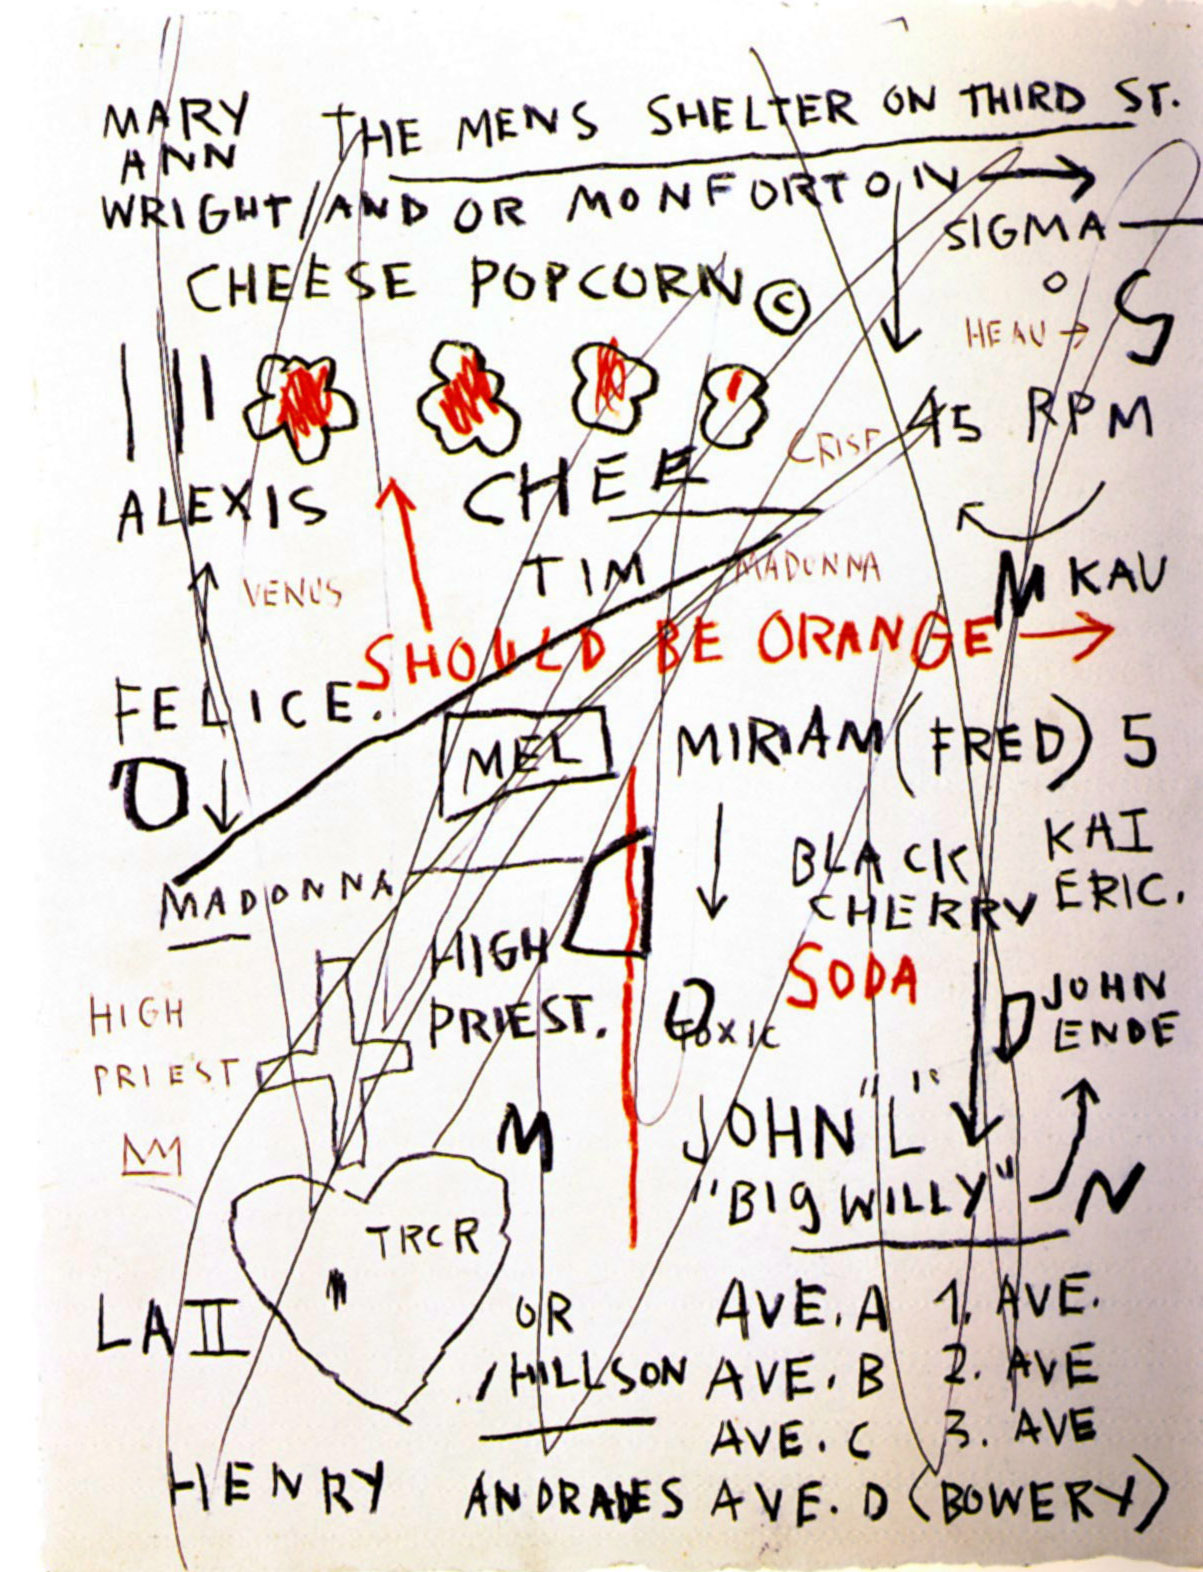 MARY THE MENS SHELTER ON THIRD ST.
ANN
WRIGHT/AND OR MONFORTO, IV
SIGMA
CHEESE POPCORN ©
S
HEAU
45 RPM
CRISP
ALEXIS CHEE
TIM MADONNA M KAU
VENUS
SHOULD BE ORANGE
FELICE.
MEL MIRIAM (FRED) 5
BLACK KAI
CHERRY ERIC.
MADONNA
HIGH SODA
PRIEST. TOXIC
HIGH
PRIEST
D JOHN
ENDE
M JOHN "L"
"BIG WILLY" N
TRCR
LA II OR AVE. A 1. AVE.
/HILLSON AVE. B 2. AVE
AVE. C 3. AVE
HENRY ANDRADES AVE. D (BOWERY)